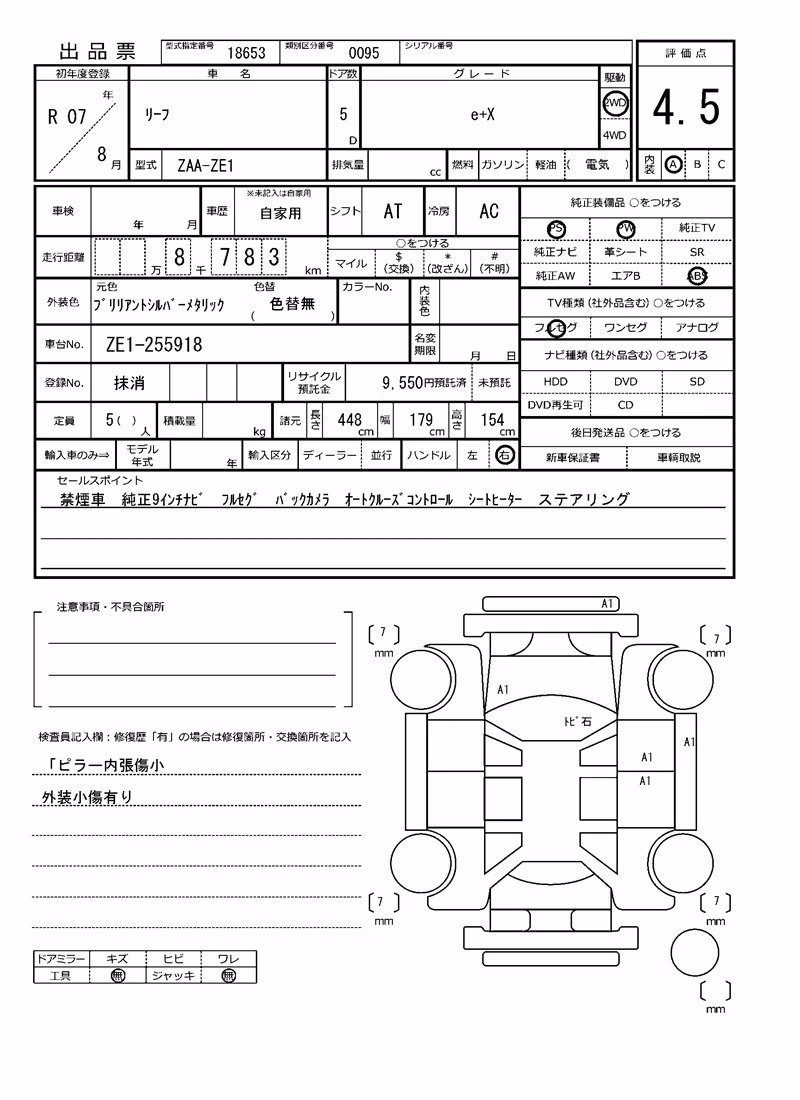 出品票 型式指定番号 18653 類別区分番号 0095 シリアル番号
初年度登録 車名 ドア数 グレード 駆動 評価点
R 07 年 8 月 リーフ 5 D e+X 2WD 4WD 4.5
型式 ZAA-ZE1 排気量 cc 燃料 ガソリン 軽油 ( 電気 ) 内装 A B C
車検 年 月 車歴 ※未記入は自家用 自家用 シフト AT 冷房 AC
純正装備品 ○をつける
PS PW 純正TV
走行距離 万 8 千 7 8 3 km ○をつける
マイル $ (交換) * (改ざん) # (不明)
純正ナビ 革シート SR
純正AW エアB ABS
外装色 元色 ブリリアントシルバーメタリック 色替 ( 色替無 ) カラーNo. 内装色
TV種類 (社外品含む) ○をつける
フルセグ ワンセグ アナログ
車台No. ZE1-255918 名変期限 月 日
ナビ種類 (社外品含む) ○をつける
登録No. 抹消 リサイクル預託金 9,550円預託済 未預託
HDD DVD SD
DVD再生可 CD
定員 5 ( ) 人 積載量 kg 諸元 長さ 448 cm 幅 179 cm 高さ 154 cm
後日発送品 ○をつける
輸入車のみ⇒ モデル年式 年 輸入区分 ディーラー 並行 ハンドル 左 右
新車保証書 車輌取説
セールスポイント
禁煙車 純正9インチナビ フルセグ バックカメラ オートクルーズコントロール シートヒーター ステアリング
注意事項・不具合箇所
検査員記入欄：修復歴「有」の場合は修復箇所・交換箇所を記入
「ピラー内張傷小
外装小傷有り
ドアミラー キズ ヒビ ワレ
工具 無 ジャッキ 無
A1
7 mm
7 mm
A1
トビ石
A1
A1
A1
7 mm
7 mm
mm